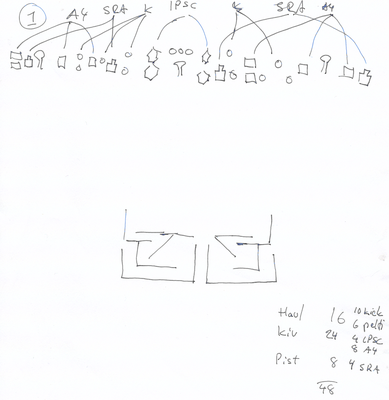 1
A4 SRA K IPSC K SRA A4
Haul 16 10 kick
6 pelti
Kiv 24 4 IPSC
8 A4
Pist 8 4 SRA
48